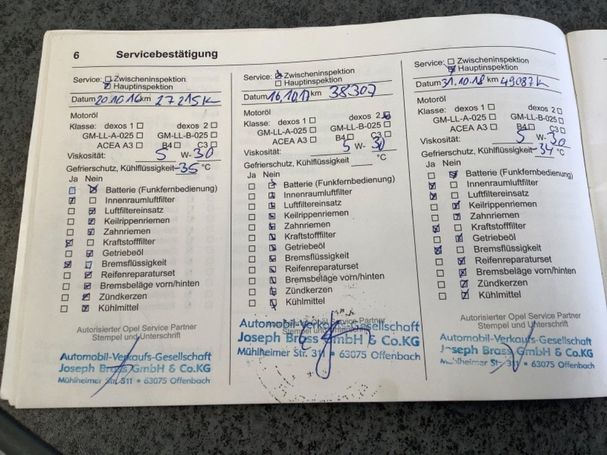 6 Servicebestätigung
Service: Zwischeninspektion
Hauptinspektion
Datum 20.10.16 km 27215 K
Motoröl
Klasse: dexos 1 dexos 2
GM-LL-A-025 GM-LL-B-025
ACEA A3 B4 C3
Viskosität: 5 W- 30
Gefrierschutz, Kühlflüssigkeit -35 °C
Ja Nein
Batterie (Funkfernbedienung)
Innenraumluftfilter
Luftfiltereinsatz
Keilrippenriemen
Zahnriemen
Kraftstofffilter
Getriebeöl
Bremsflüssigkeit
Reifenreparaturset
Bremsbeläge vorn/hinten
Zündkerzen
Kühlmittel
Autorisierter Opel Service Partner
Stempel und Unterschrift
Automobil-Verkaufs-Gesellschaft
Joseph Brass GmbH & Co.KG
Mühlheimer Str. 311 • 63075 Offenbach
Service: Zwischeninspektion
Hauptinspektion
Datum 16.10.17 km 38307
Motoröl
Klasse: dexos 1 dexos 2
GM-LL-A-025 GM-LL-B-025
ACEA A3 B4 C3
Viskosität: 5 W- 30
Gefrierschutz, Kühlflüssigkeit °C
Ja Nein
Batterie (Funkfernbedienung)
Innenraumluftfilter
Luftfiltereinsatz
Keilrippenriemen
Zahnriemen
Kraftstofffilter
Getriebeöl
Bremsflüssigkeit
Reifenreparaturset
Bremsbeläge vorn/hinten
Zündkerzen
Kühlmittel
Service Partner
Stempel und Unterschrift
Automobil-Verkaufs-Gesellschaft
Joseph Brass GmbH & Co.KG
Mühlheimer Str. 311 • 63075 Offenbach
Service: Zwischeninspektion
Hauptinspektion
Datum 31.10.18 km 49087 K
Motoröl
Klasse: dexos 1 dexos 2
GM-LL-A-025 GM-LL-B-025
ACEA A3 B4 C3
Viskosität: 5 W- 30
Gefrierschutz, Kühlflüssigkeit -34 °C
Ja Nein
Batterie (Funkfernbedienung)
Innenraumluftfilter
Luftfiltereinsatz
Keilrippenriemen
Zahnriemen
Kraftstofffilter
Getriebeöl
Bremsflüssigkeit
Reifenreparaturset
Bremsbeläge vorn/hinten
Zündkerzen
Kühlmittel
Autorisierter Opel Service Partner
Stempel und Unterschrift
Automobil-Verkaufs-Gesellschaft
Joseph Brass GmbH & Co.KG
Mühlheimer Str. 311 • 63075 Offenbach